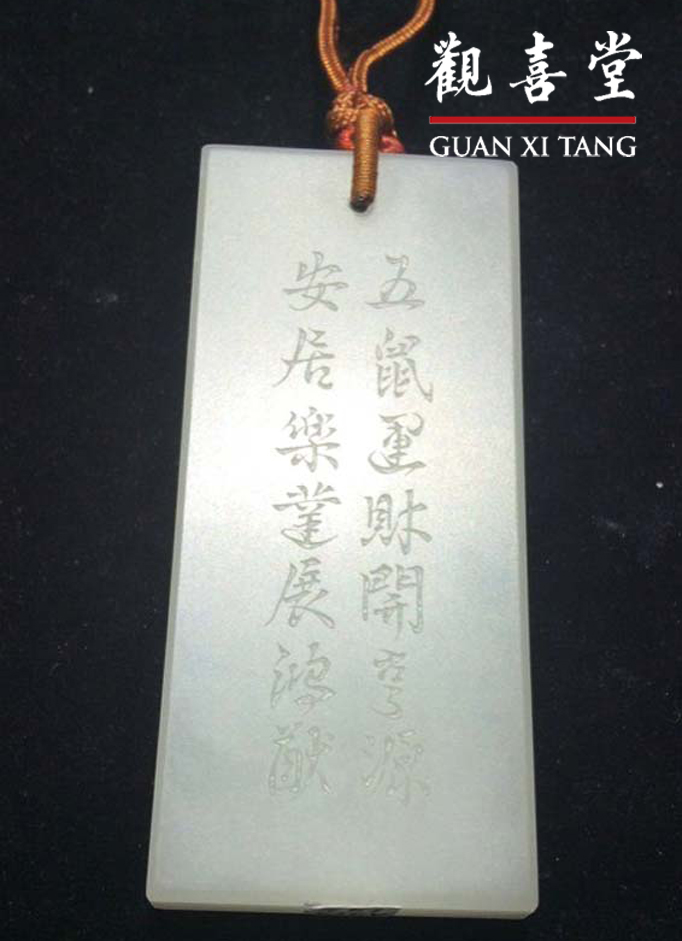 觀喜堂
GUAN XI TANG
五鼠運財開亨源
安居樂業展鴻猷